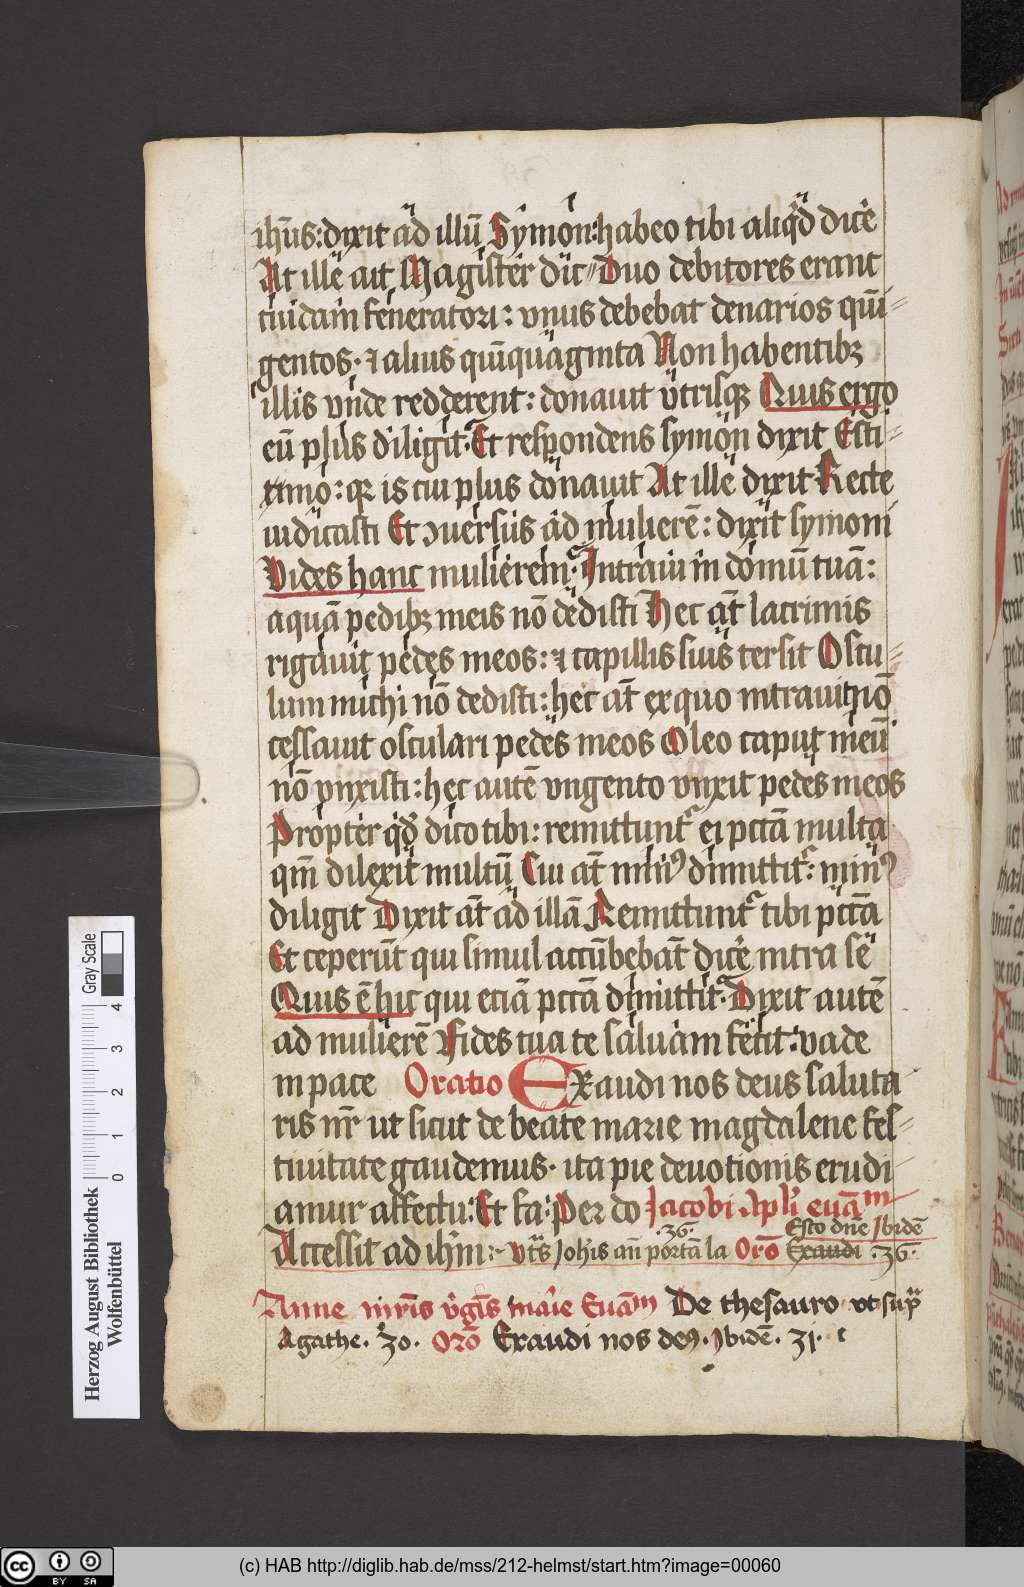 ih̄us: dixit ad illū Symon: habeo tibi aliq̇d dicē
At ille ait Magister dic Duo debitores erant
cuidam feneratori: vnus debebat denarios quī
gentos. ⁊ alius quīquaginta Non habentibꝫ
illis vnde redderent: donauit vtrisqꝫ Quis ergo
eū plus diligit. Et respondens symon dixit Esti
timo: qꝛ is cui plus donauit At ille dixit Recte
iudicasti Et ꝯuersus ad mulierē: dixit symoni
Vides hanc mulierem. Intraui in domū tuā:
aquā pedibꝫ meis nō dedisti Hec aūt lacrimis
rigauit pedes meos: ⁊ capillis suis tersit Oscu
lum michi nō dedisti: hec aūt ex quo intrauit nō
cessauit osculari pedes meos Oleo caput meū
nō vnxisti: hec autē vngento vnxit pedes meos
Propter qđ dico tibi: remittunt᷑ ei pctā multa
qm̄ dilexit multū Cui aūt minꝰ dimittit᷑: minꝰ
diligit Dixit aūt ad illā Remittunt᷑ tibi pctā
Et ceperūt qui simul accūbebāt dicē intra se
Quis ē hic qui eciā pctā dimittit. Dixit autē
ad mulierē Fides tua te saluam fecit: vade
in pace Oratio Exaudi nos deus saluta
ris nr̄ ut sicut de beate marie magdalene fes
tiuitate gaudemus. ita pie deuotionis erudi
amur affectu: Et fa: Per do Jacobi Apl̄i euāᵐ
.36. Esto dn̄e Jbidē
Accessit ad ih̄m: vt s̄ Joh̄is an̄ portā la Orō Exaudi .36.
Anne mr̄is v̄gīs marie Euāᵐ De thesauro vt supᵃ
Agathe. 30. Orō Exaudi nos deꝰ. Jbidē. 31.
Gray Scale
0 1 2 3 4
Herzog August Bibliothek
Wolfenbüttel
cc BY SA
(c) HAB http://diglib.hab.de/mss/212-helmst/start.htm?image=00060